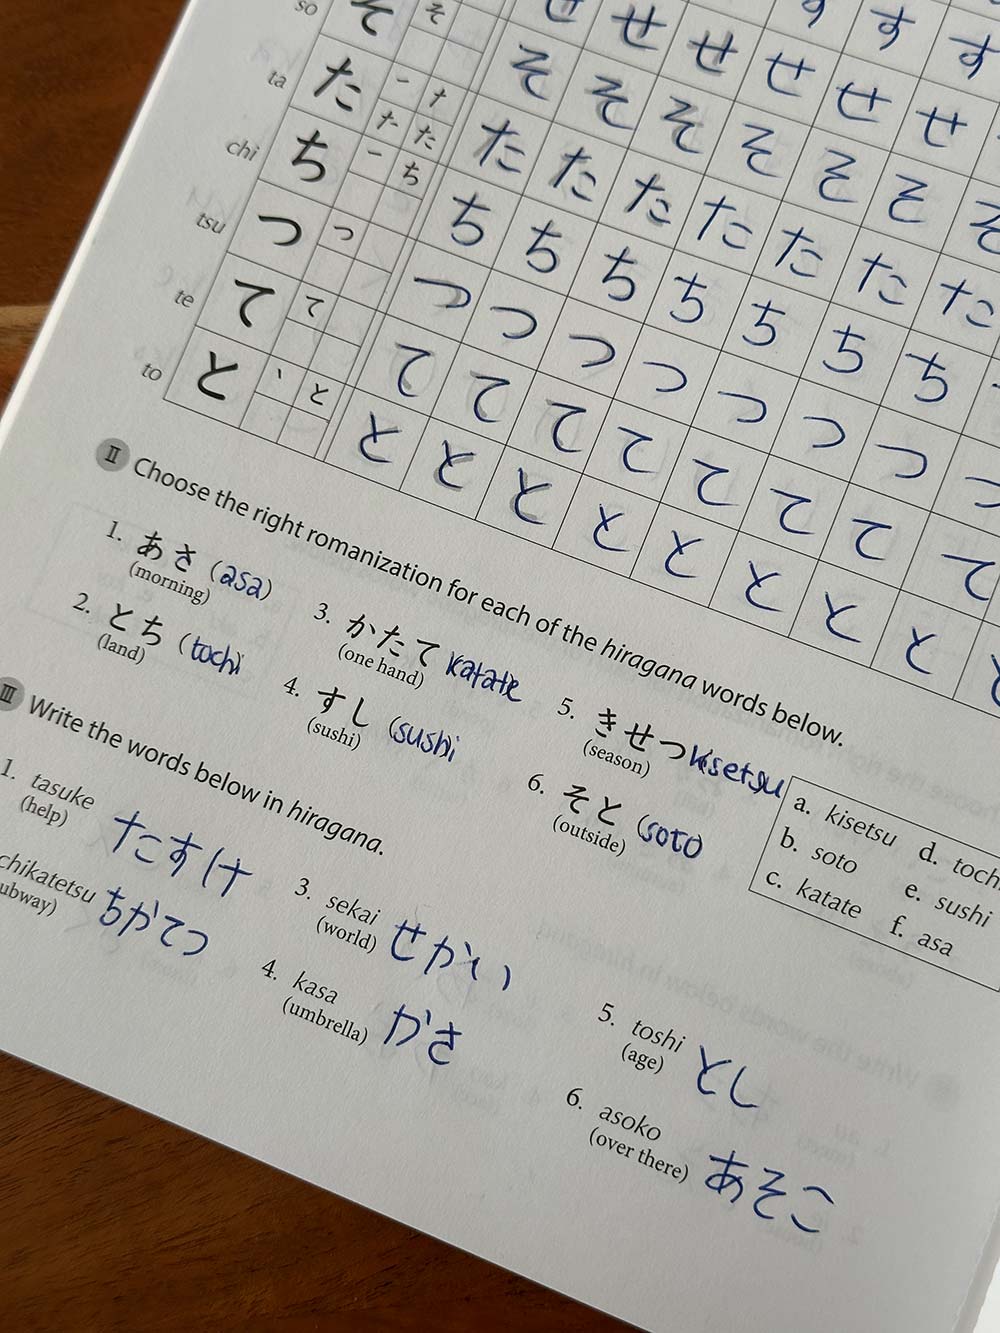 so そ そ せ せ せ せ せ せ す す す
ta た 一 ナ た た そ そ そ そ そ そ そ
chi ち 一 ち た た た た た た た
tsu つ つ ち ち ち ち ち ち ち
te て て つ つ つ つ つ つ つ つ
to と ヽ と て て て て て て て て
と と と と と と と と
II Choose the right romanization for each of the hiragana words below.
1. あさ (asa)
(morning)
2. とち (tochi
(land)
3. かたて katate
(one hand)
4. すし (sushi
(sushi)
5. きせつ kisetsu
(season)
6. そと (soto
(outside)
a. kisetsu d. toch
b. soto e. sushi
c. katate f. asa
III Write the words below in hiragana.
1. tasuke たすけ
(help)
chikatetsu ちかてつ
ubway)
3. sekai せかい
(world)
4. kasa かさ
(umbrella)
5. toshi とし
(age)
6. asoko あそこ
(over there)